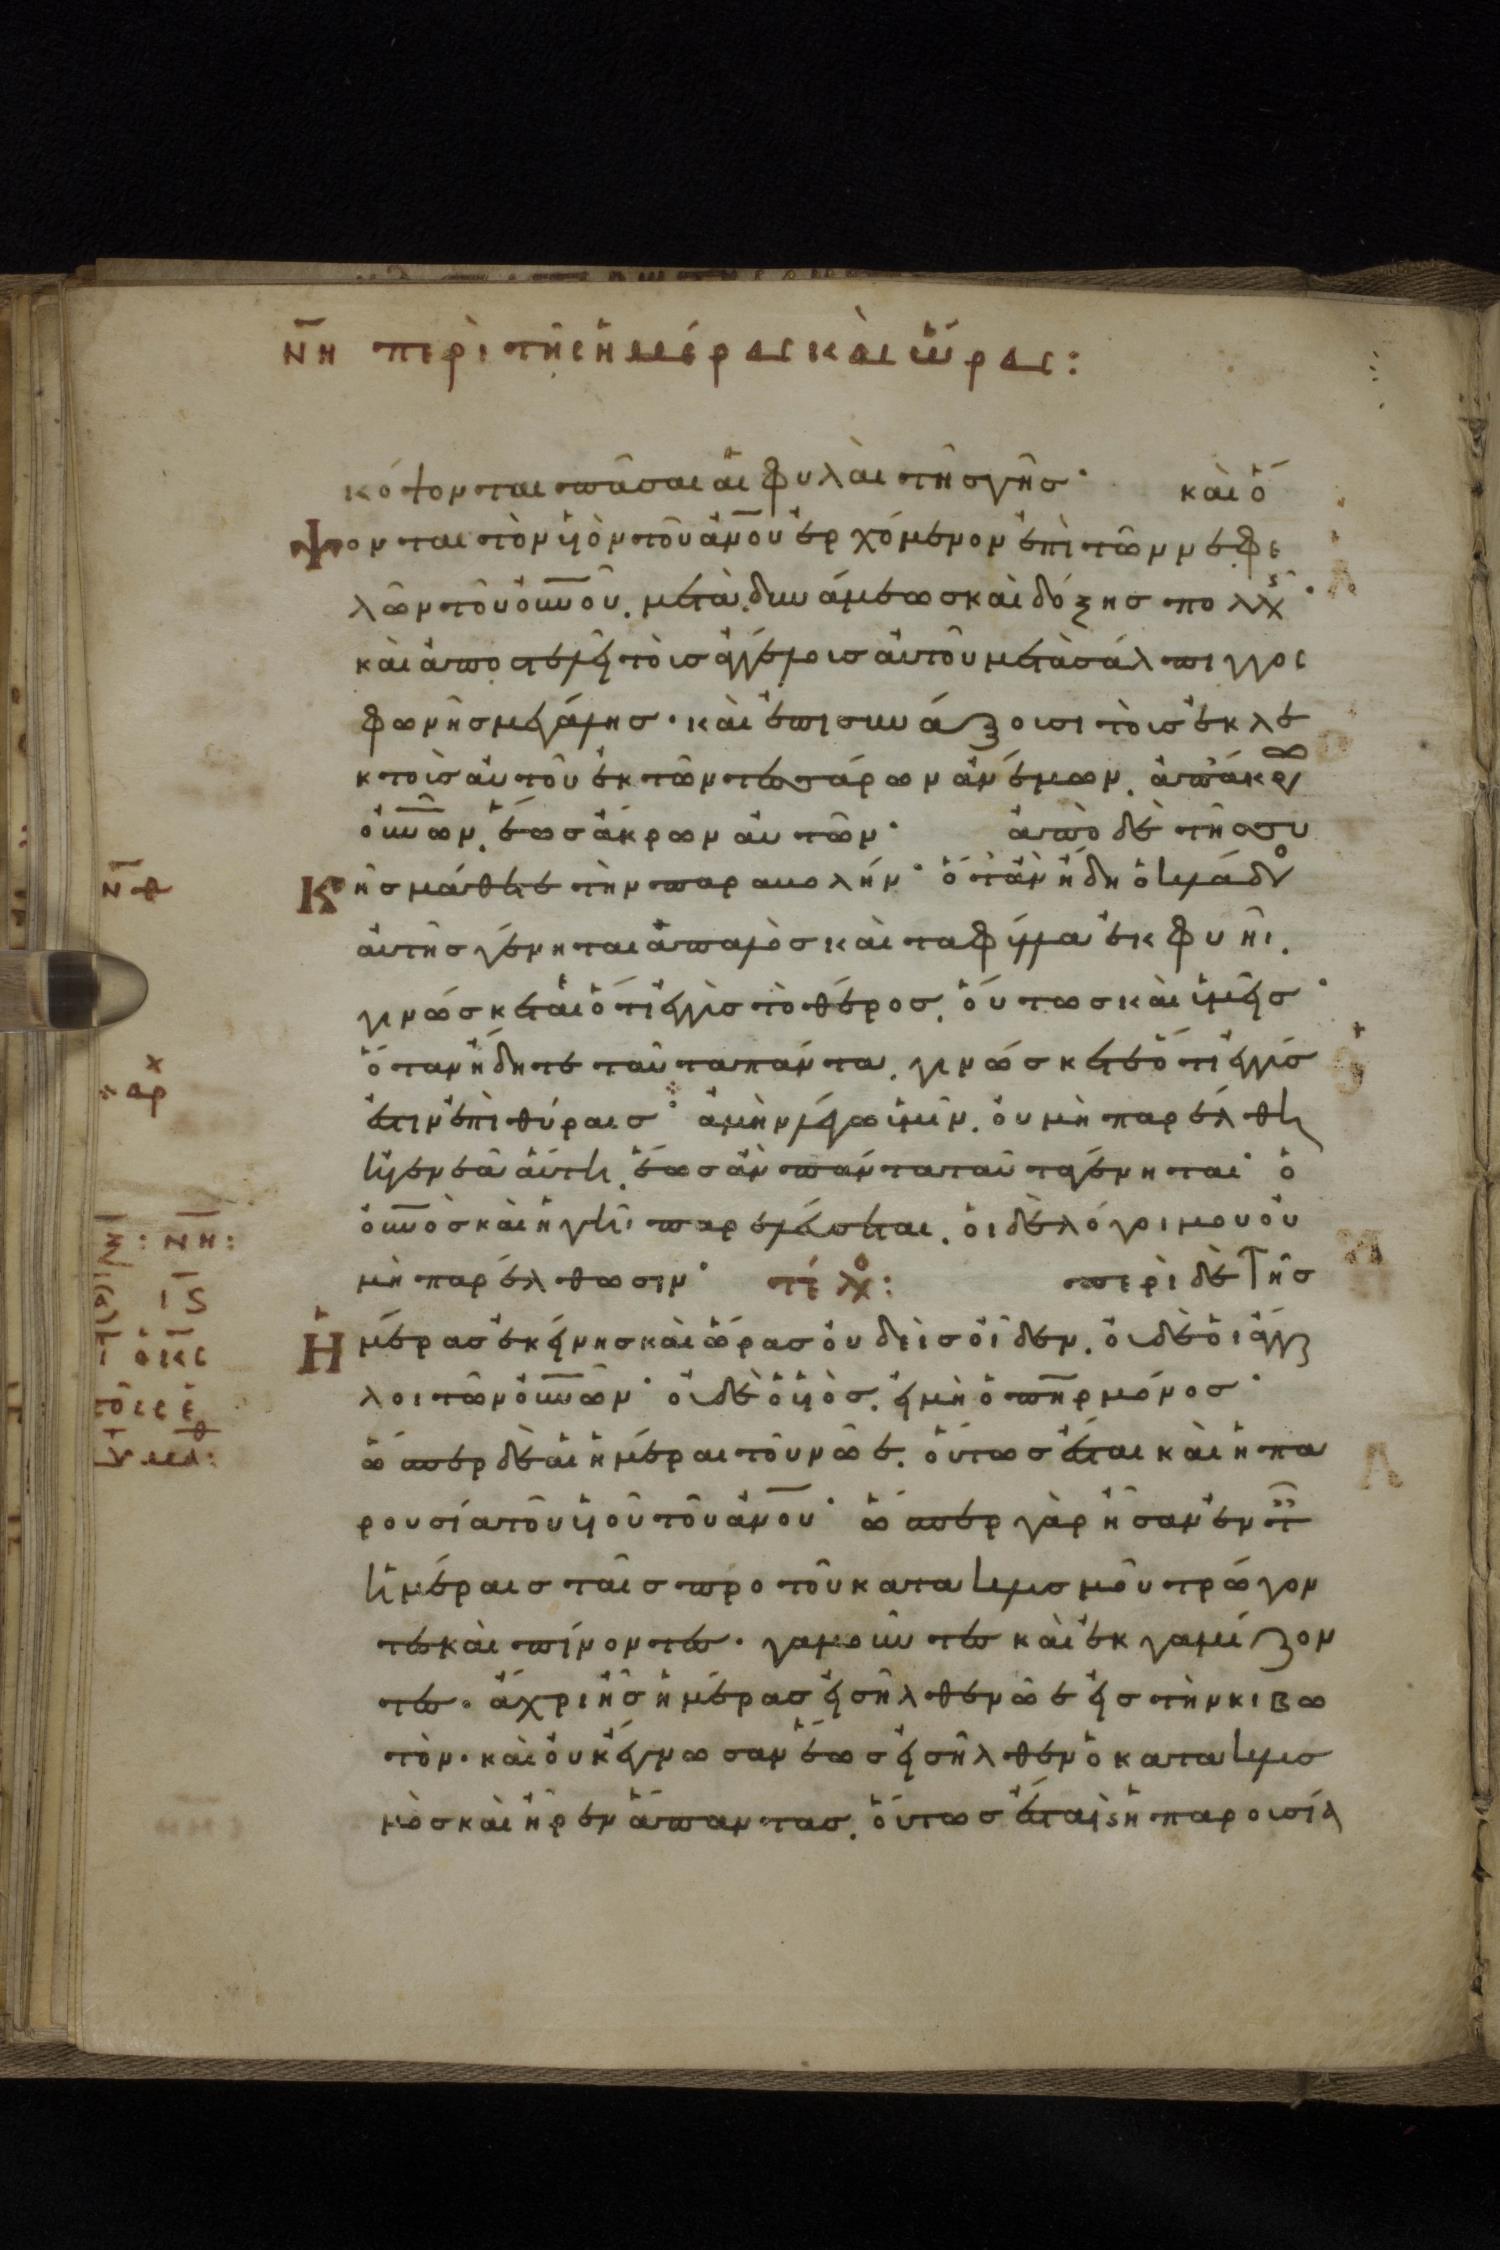 νη περὶ τῆς ἡμέρας καὶ ὥρας:
κόψονται πᾶσαι αἱ φυλαὶ τῆς γῆς· καὶ ὄ
ψονται τὸν υἱὸν τοῦ ἀν̅ο̅υ̅ ἐρχόμενον ἐπὶ τῶν νεφε
λῶν τοῦ οὐν̅οῦ. μετὰ δυνάμεως καὶ δόξης πολλῆς·
καὶ ἀποστελεῖ τοὺς ἀγγέλους αὐτοῦ μετὰ σάλπιγγος
φωνῆς μεγάλης· καὶ ἐπισυνάξουσι τοὺς ἐκλε
κτοὺς αὐτοῦ ἐκ τῶν τεσσάρων ἀνέμων. ἀπ' ἄκρων
οὐν̅ῶν. ἕως ἄκρων αὐτῶν· ἀπὸ δὲ τῆς συ
νθ
κῆς μάθετε τὴν παραβολήν· ὅταν ἤδη ὁ κλάδος
αὐτῆς γένηται ἁπαλὸς καὶ τὰ φύλλα ἐκφυῆι.
γινώσκεται ὅτι ἐγγὺς τὸ θέρος. οὕτως καὶ ὑμεῖς
αρχ
ὅταν ἤδητε ταῦτα πάντα. γινώσκετε ὅτι ἐγγύς
ἐστιν ἐπὶ θύραις· ἀμὴν λέγω ὑμῖν. οὐ μὴ παρέλθη
ἡ γενεὰ αὕτη. ἕως ἂν πάντα ταῦτα γένηται· ὁ
οὐν̅ὸς καὶ ἡ γῆ παρελεύσεται. οἱ δὲ λόγοι μου οὐ
μὴ παρέλθωσιν· τέλος: περὶ δὲ τῆς
ἡμέρας ἐκείνης καὶ ὥρας οὐδεὶς οἶδεν. οὐδὲ οἱ ἄγγε
λοι τῶν οὐν̅ῶν· οὐδὲ ὁ υἱὸς. εἰ μὴ ὁ πηρ μόνος·
ὥσπερ δὲ αἱ ἡμέραι τοῦ νῶε. οὕτως ἔσται καὶ ἡ πα
ρουσία τοῦ υἱοῦ τοῦ ἀν̅ο̅υ̅· ὥσπερ γὰρ ἦσαν ἐν τ
ἡμέραις ταῖς πρὸ τοῦ κατακλυσμοῦ τρώγον
τες καὶ πίνοντες· γαμοῦντες καὶ ἐκγαμίζον
τες· ἄχρι ἧς ἡμέρας εἰσῆλθεν νῶε εἰς τὴν κιβω
τὸν· καὶ οὐκ ἔγνωσαν ἕως εἰσῆλθεν ὁ κατακλυσ
μὸς καὶ ἦρεν ἅπαντας. οὕτως ἔσται καὶ ἡ παρουσία